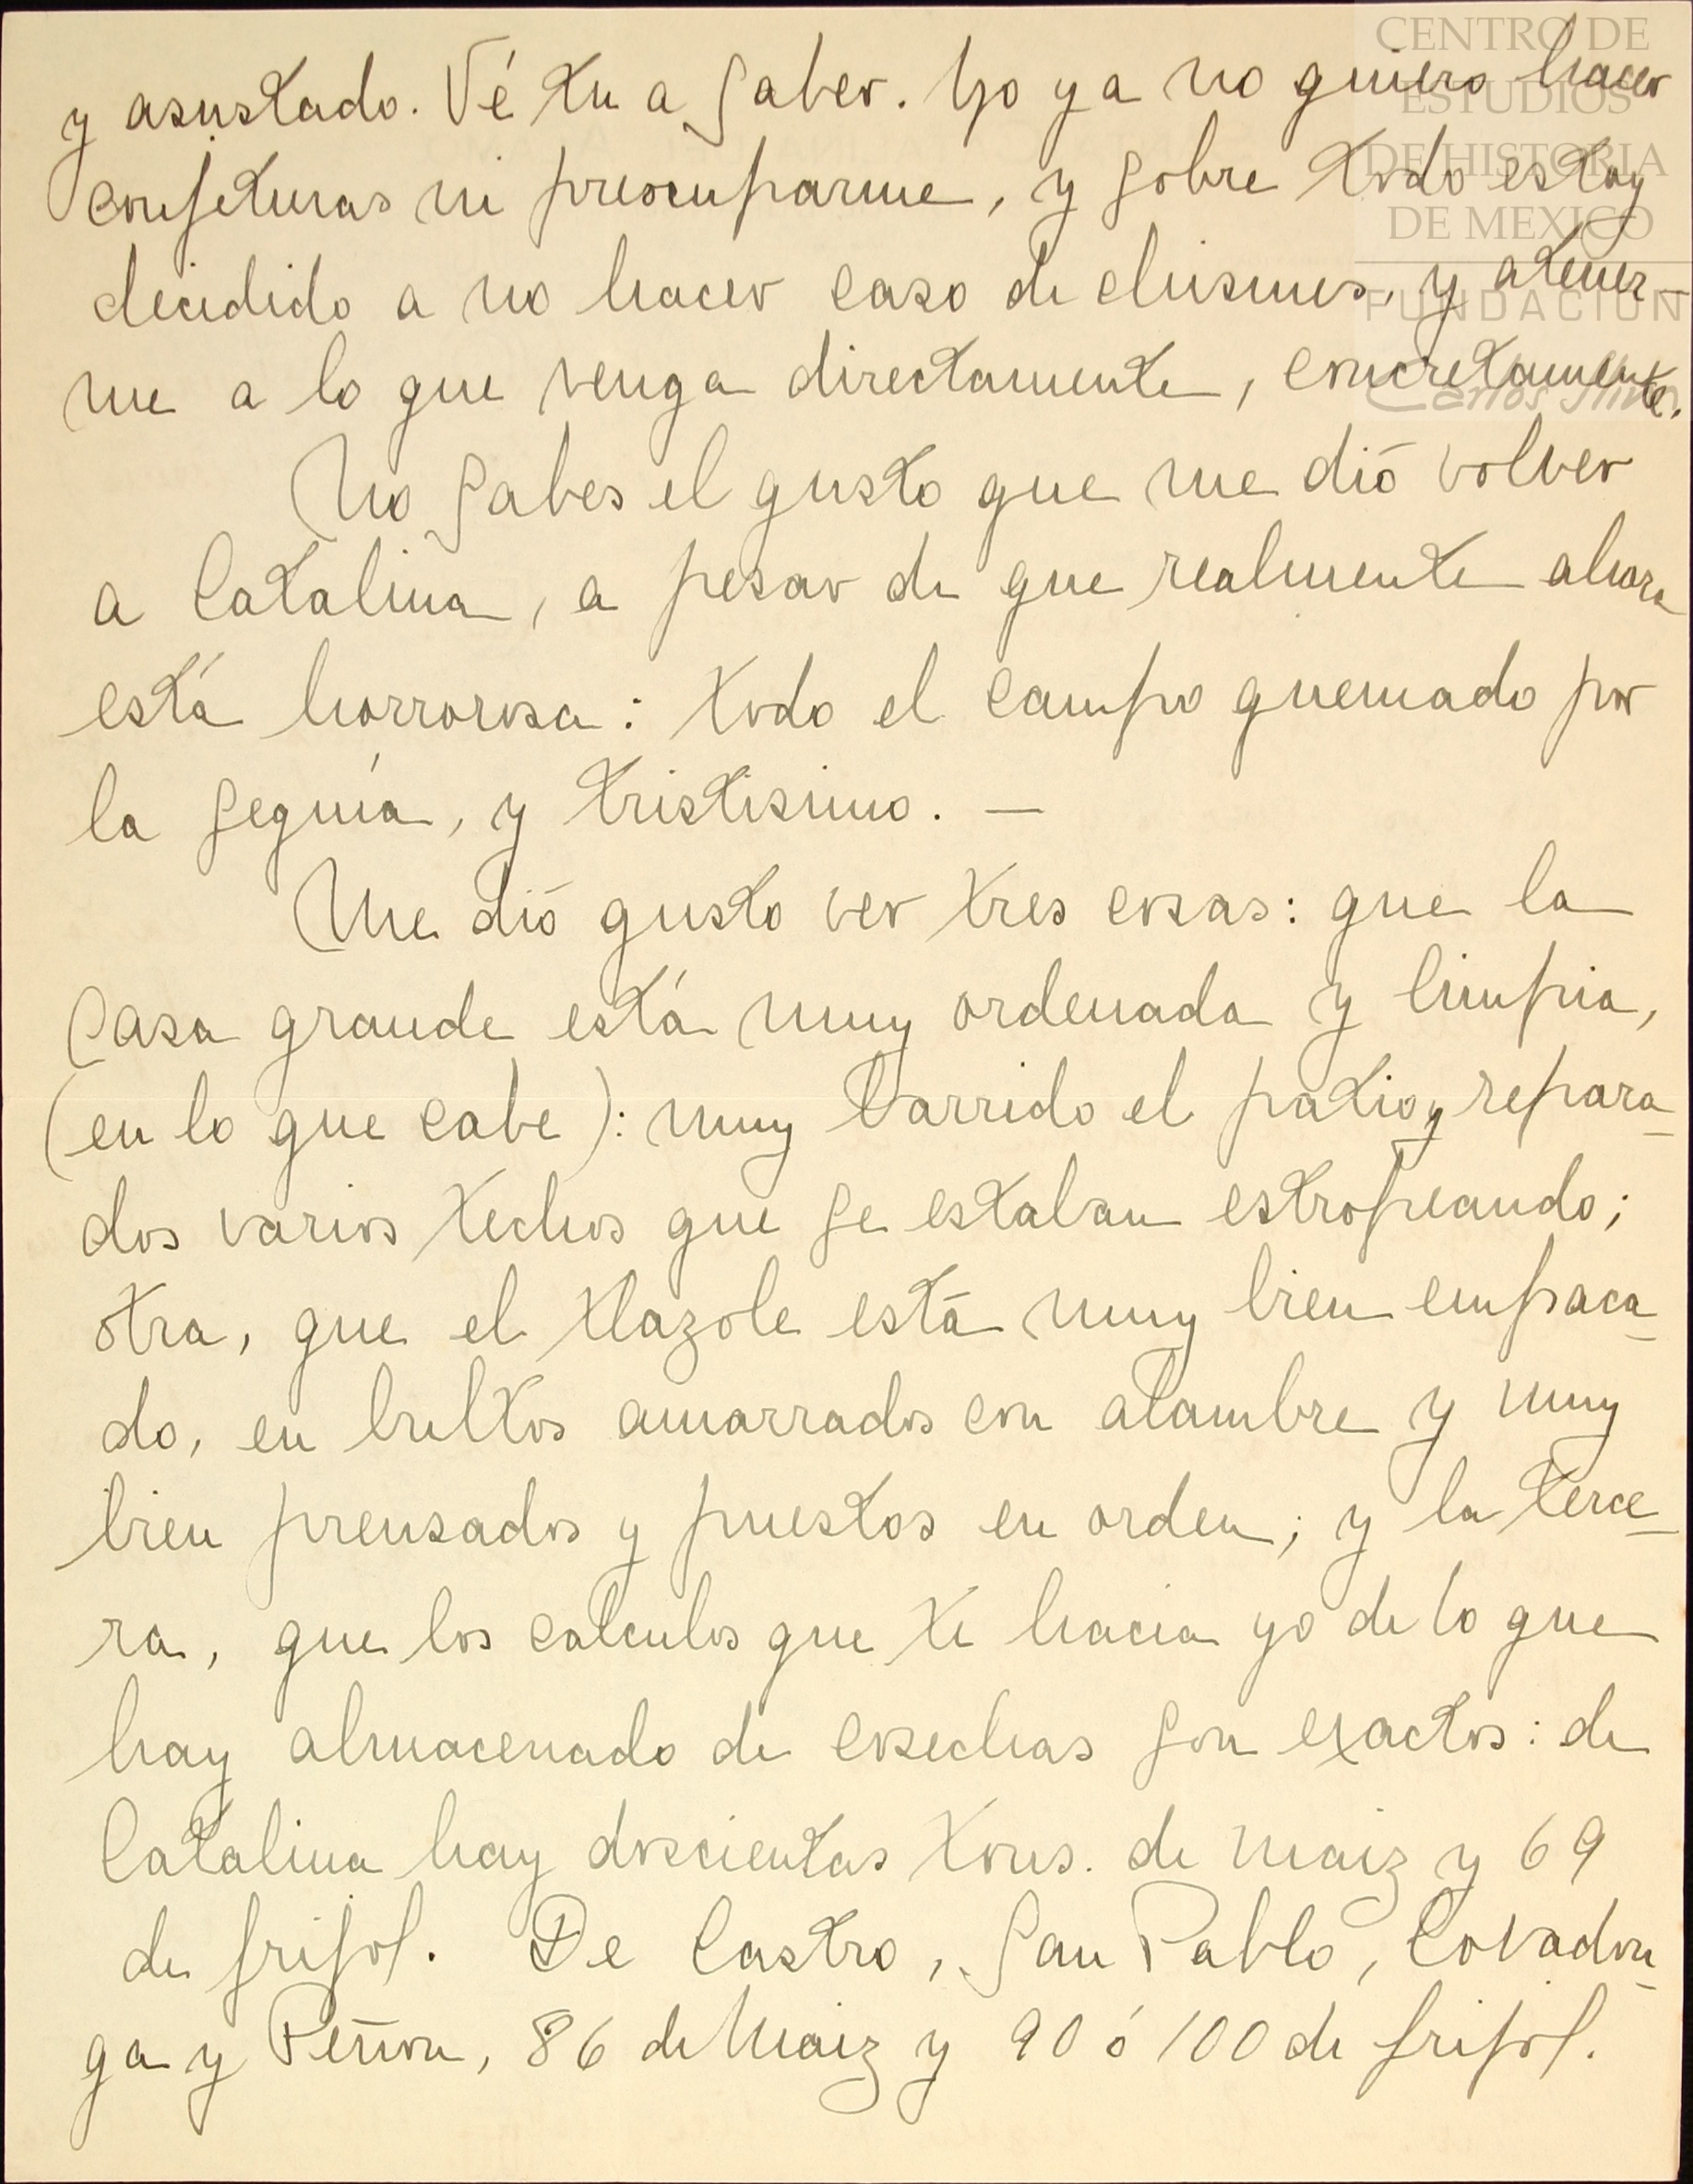 CENTRO DE
ESTUDIOS
DE HISTORIA
DE MEXICO
FUNDACION
Carlos Slim
y asustado. Vé tu a saber. Yo ya no quiero hacer
conjeturas ni preocuparme, y sobre todo estoy
decidido a no hacer caso de chismes, y atener-
me a lo que venga directamente, concretamente.
No sabes el gusto que me dió volver
a Catalina, a pesar de que realmente ahora
está horrorosa: todo el campo quemado por
la sequía, y tristisimo. —
Me dió gusto ver tres cosas: que la
Casa grande está muy ordenada y limpia,
(en lo que cabe): muy barrido el patio y repara-
dos varios techos que se estaban estropeando;
otra, que el tlazole está muy bien empaca-
do, en bultos amarrados con alambre y muy
bien prensados y puestos en orden; y la terce-
ra, que los calculos que te hacia yo de lo que
hay almacenado de cosechas son exactos: de
Catalina hay doscientas tons. de maiz y 69
de frijol. De Castro, San Pablo, Covadon-
ga y Peñon, 86 de Maiz y 90 ó 100 de frijol.